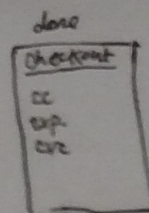 done
checkout
cc
exp
cvc